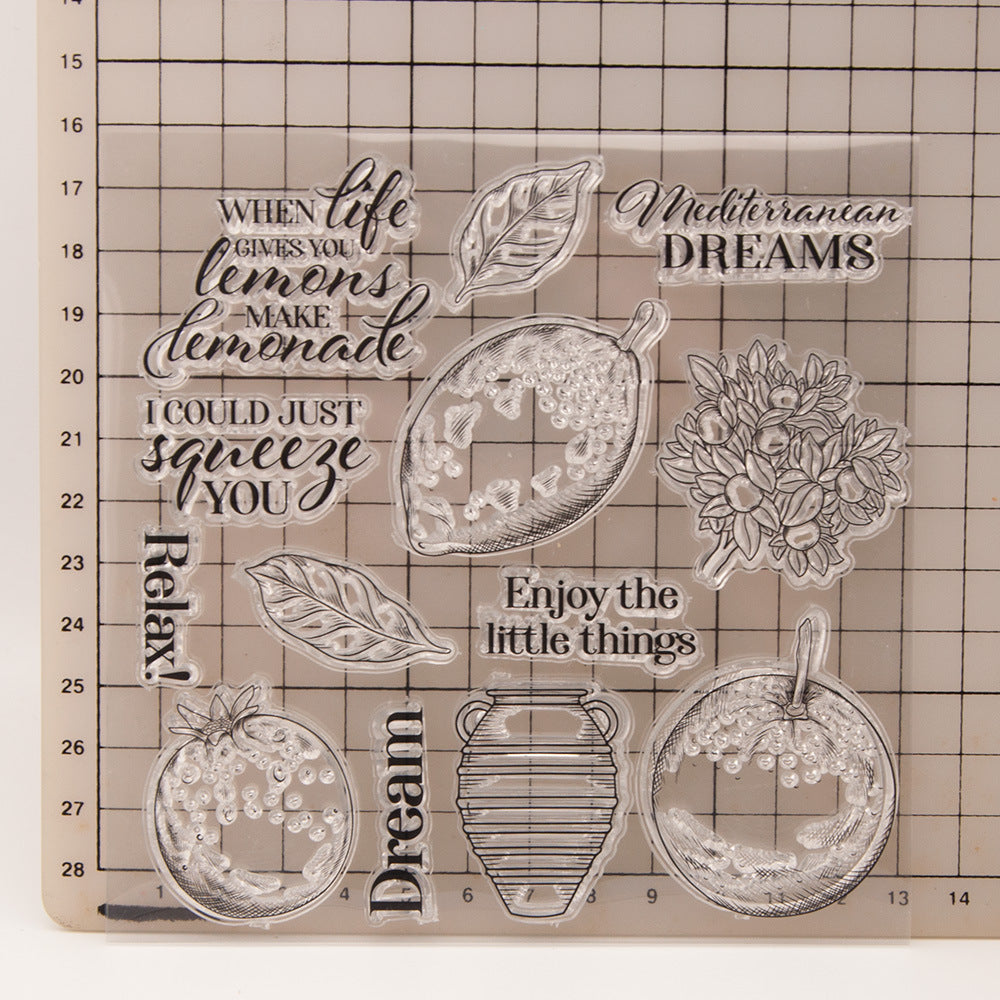 14
15
16
17
18
19
20
21
22
23
24
25
26
27
28
WHEN life
GIVES YOU
lemons
MAKE
lemonade
Mediterranean
DREAMS
I COULD JUST
squeeze
YOU
Relax!
Enjoy the
little things
Dream
1 3 4 6 7 8 9 11 12 13 14